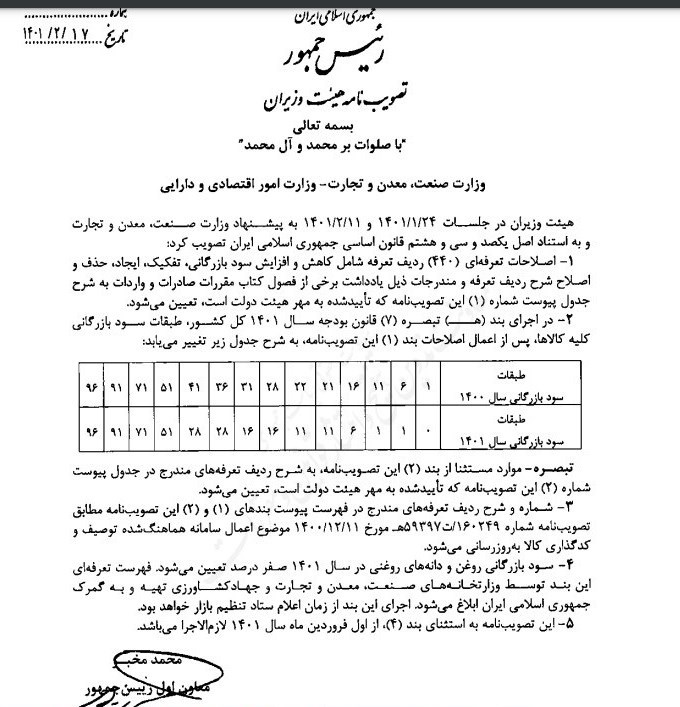 جمهوری اسلامی ایران
شماره
تاریخ ۱۴۰۱/۲/۱۷
رئیس جمهور
تصویب نامه هیئت وزیران
بسمه تعالی
"با صلوات بر محمد و آل محمد"
وزارت صنعت، معدن و تجارت- وزارت امور اقتصادی و دارایی
هیئت وزیران در جلسات ۱۴۰۱/۱/۲۴ و ۱۴۰۱/۲/۱۱ به پیشنهاد وزارت صنعت، معدن و تجارت
و به استناد اصل یکصد و سی و هشتم قانون اساسی جمهوری اسلامی ایران تصویب کرد:
۱- اصلاحات تعرفه‌ای (۴۴۰) ردیف تعرفه شامل کاهش و افزایش سود بازرگانی، تفکیک، ایجاد، حذف و
اصلاح شرح ردیف تعرفه و مندرجات ذیل یادداشت برخی از فصول کتاب مقررات صادرات و واردات به شرح
جدول پیوست شماره (۱) این تصویب‌نامه که تأییدشده به مهر هیئت دولت است، تعیین می‌شود.
۲- در اجرای بند (هـ) تبصره (۷) قانون بودجه سال ۱۴۰۱ کل کشور، طبقات سود بازرگانی
کلیه کالاها، پس از اعمال اصلاحات بند (۱) این تصویب‌نامه، به شرح جدول زیر تغییر می‌یابد:
طبقات
سود بازرگانی سال ۱۴۰۰ ۱ ۶ ۱۱ ۱۶ ۲۱ ۲۲ ۲۸ ۳۱ ۳۶ ۴۱ ۵۱ ۷۱ ۹۱ ۹۶
طبقات
سود بازرگانی سال ۱۴۰۱ ۰ ۱ ۱ ۶ ۱۱ ۱۱ ۱۶ ۱۶ ۲۸ ۲۸ ۵۱ ۷۱ ۹۱ ۹۶
تبصره- موارد مستثنا از بند (۲) این تصویب‌نامه، به شرح ردیف تعرفه‌های مندرج در جدول پیوست
شماره (۲) این تصویب‌نامه که تأییدشده به مهر هیئت دولت است، تعیین می‌شود.
۳- شماره و شرح ردیف تعرفه‌های مندرج در فهرست پیوست بندهای (۱) و (۲) این تصویب‌نامه مطابق
تصویب‌نامه شماره ۱۶۰۲۴۹/ت۵۹۳۹۷هـ مورخ ۱۴۰۰/۱۲/۱۱ موضوع اعمال سامانه هماهنگ‌شده توصیف و
کدگذاری کالا به‌روزرسانی می‌شود.
۴- سود بازرگانی روغن و دانه‌های روغنی در سال ۱۴۰۱ صفر درصد تعیین می‌شود. فهرست تعرفه‌ای
این بند توسط وزارتخانه‌های صنعت، معدن و تجارت و جهادکشاورزی تهیه و به گمرک
جمهوری اسلامی ایران ابلاغ می‌شود. اجرای این بند از زمان اعلام ستاد تنظیم بازار خواهد بود.
۵- این تصویب‌نامه به استثنای بند (۴)، از اول فروردین ماه سال ۱۴۰۱ لازم‌الاجرا می‌باشد.
محمد مخبر
معاون اول رییس‌جمهور